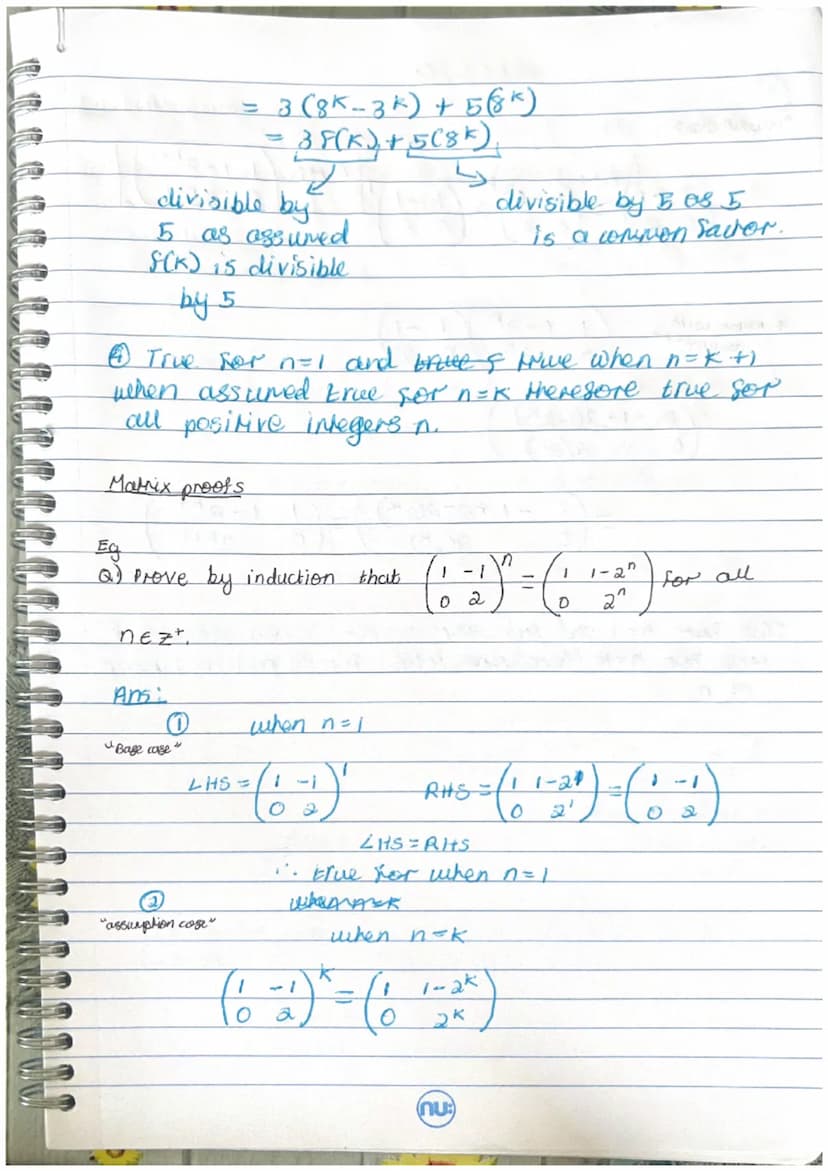 = 3(8ᵏ - 3ᵏ) + 5(8ᵏ)
= 3f(k) + 5(8ᵏ)
divisible by
5 as assumed
f(k) is divisible
by 5
divisible by 5 as 5
is a common factor.
④ True for n=1 and true f true when n=k+1
when assumed true for n=k therefore true for
all positive integers n.
Matrix proofs
Eg
Q) Prove by induction that (1 -1; 0 2)ⁿ = (1 1-2ⁿ; 0 2ⁿ) for all
n∈z⁺.
Ans:
① when n=1
"Base case"
LHS = (1 -1; 0 2)¹ RHS = (1 1-2¹; 0 2¹) = (1 -1; 0 2)
LHS = RHS
∴ true for when n=1
② when n=k
"assumption case"
when n=k
(1 -1; 0 2)ᵏ = (1 1-2ᵏ; 0 2ᵏ)
nu: